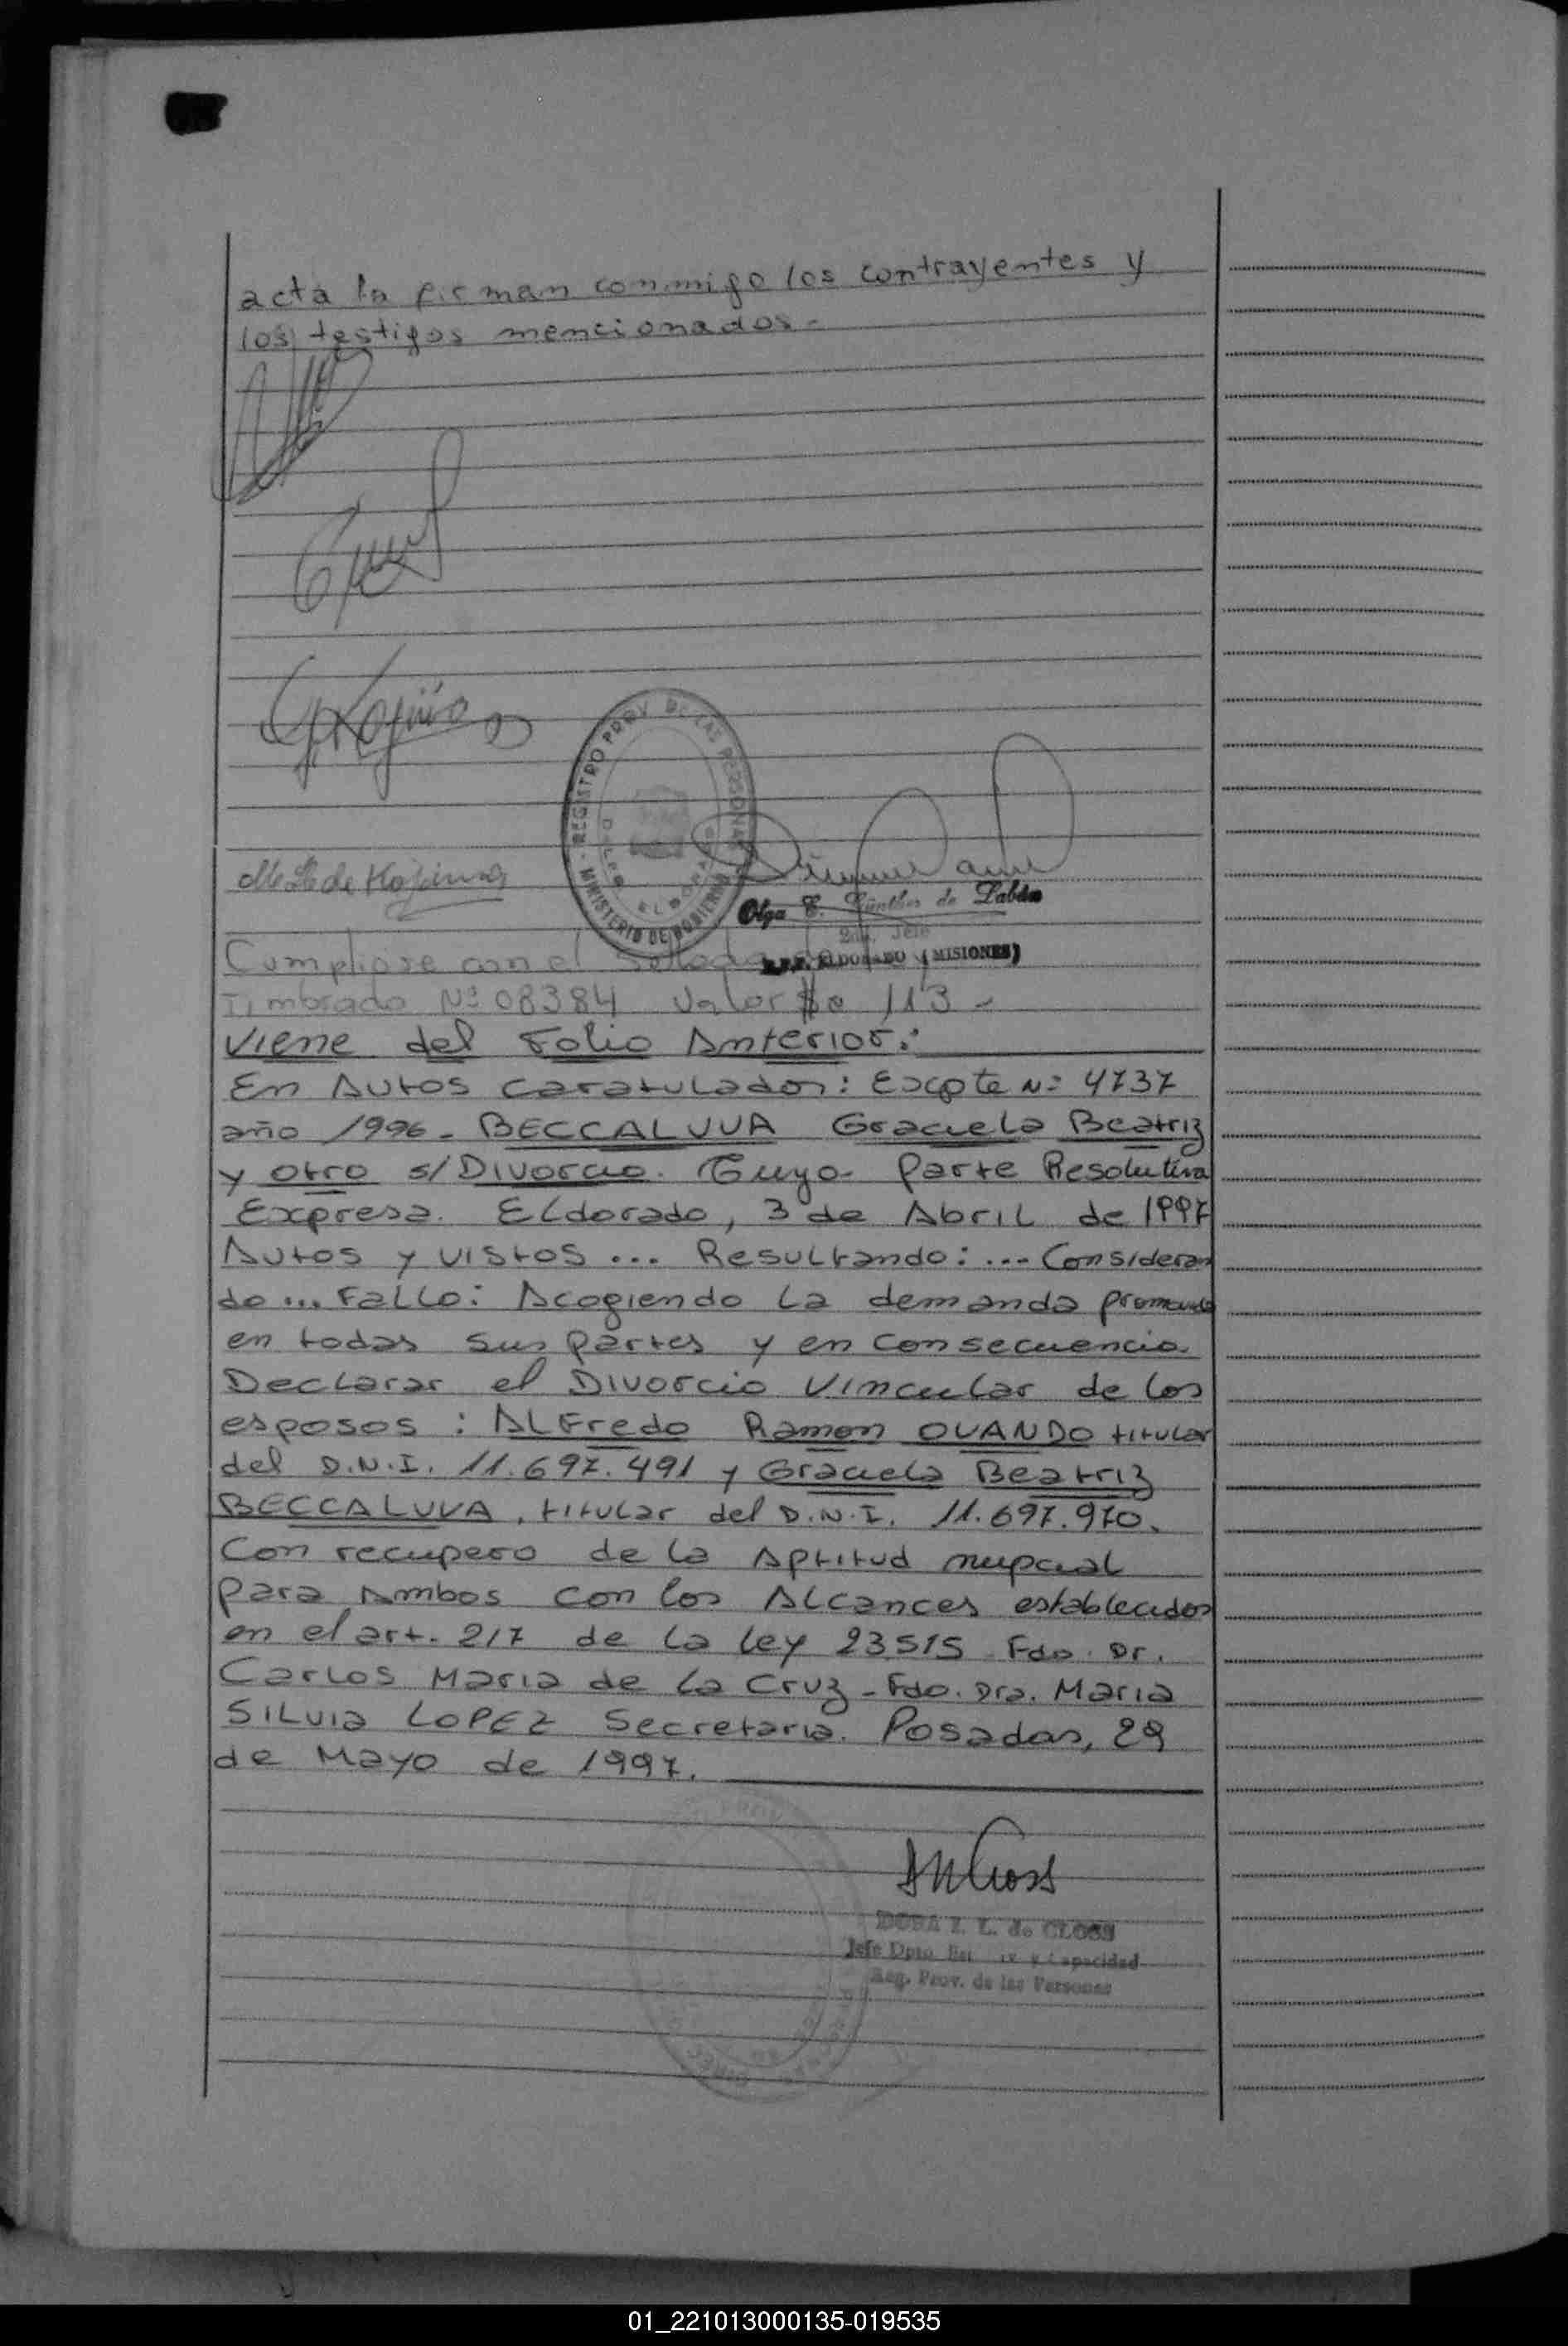 acta la firman conmigo los contrayentes y
los testigos mencionados.-
REGISTRO PROV. DE LAS PERSONAS
ELDORADO
MINISTERIO DE GOBIERNO
M. L. de Kojima
Olga E. Günther de Labán
2da. Jefe
R.P.P. ELDORADO (MISIONES)
Cumpliose con el sellado
Timbrado Nº 08384 Valor $a 113-
Viene del Folio Anterior:
En Autos caratulados: Expte Nº 4737
año 1996. BECCALUVA Graciela Beatriz
y otro s/Divorcio. Cuya Parte Resolutiva
Expresa. Eldorado, 3 de Abril de 1997
Autos y vistos ... Resultando: ... Consideran
do ... Fallo: Acogiendo la demanda promovida
en todas sus partes y en consecuencia.
Declarar el Divorcio Vincular de los
esposos : Alfredo Ramon OVANDO titular
del D.N.I. 11.697.491 y Graciela Beatriz
BECCALUVA, titular del D.N.I. 11.697.970.
Con recupero de la Aptitud nupcial
para Ambos con los Alcances establecidos
en el art. 217 de la ley 23.515 - Fdo. Dr.
Carlos Maria de la Cruz - Fdo. Dra. Maria
Silvia LOPEZ Secretaria. Posadas, 29
de Mayo de 1997.
DORA Z. L. de CLOSS
Jefe Dpto. y Capacidad
Reg. Prov. de las Personas
01_221013000135-019535